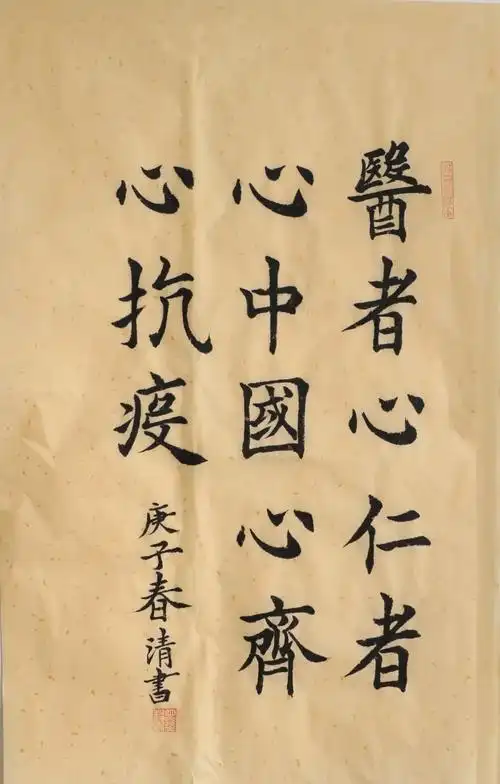 醫者心仁者
心中國心齊
心抗疫
庚子春清書